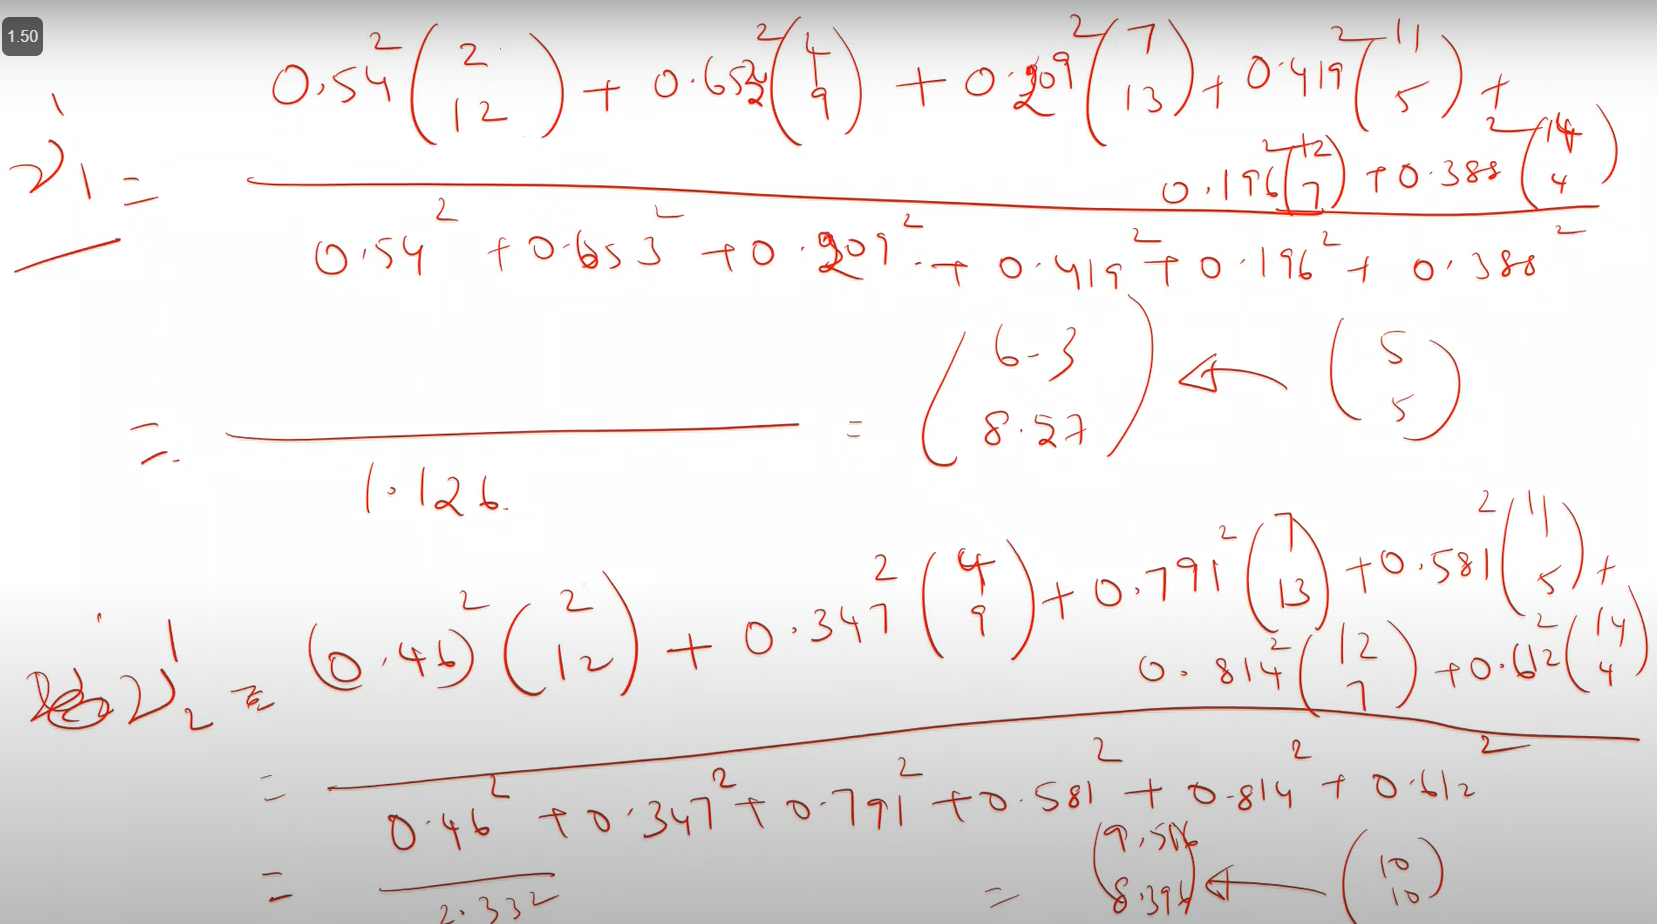 1.50
0.54² (2 12) + 0.653² (4 9) + 0.209² (7 13) + 0.419² (11 5) +
0.196² (12 7) + 0.388² (14 4)
ν₁¹ =
0.54² + 0.653² + 0.209² + 0.419² + 0.196² + 0.388²
= 1.126 = (6.3 8.57) ← (5 5)
(0.46)² (2 12) + 0.347² (4 9) + 0.791² (7 13) + 0.581² (11 5) +
0.814² (12 7) + 0.612² (14 4)
ν₂¹ =
= 0.46² + 0.347² + 0.791² + 0.581² + 0.814² + 0.612²
= 2.332 = ← (10 10)